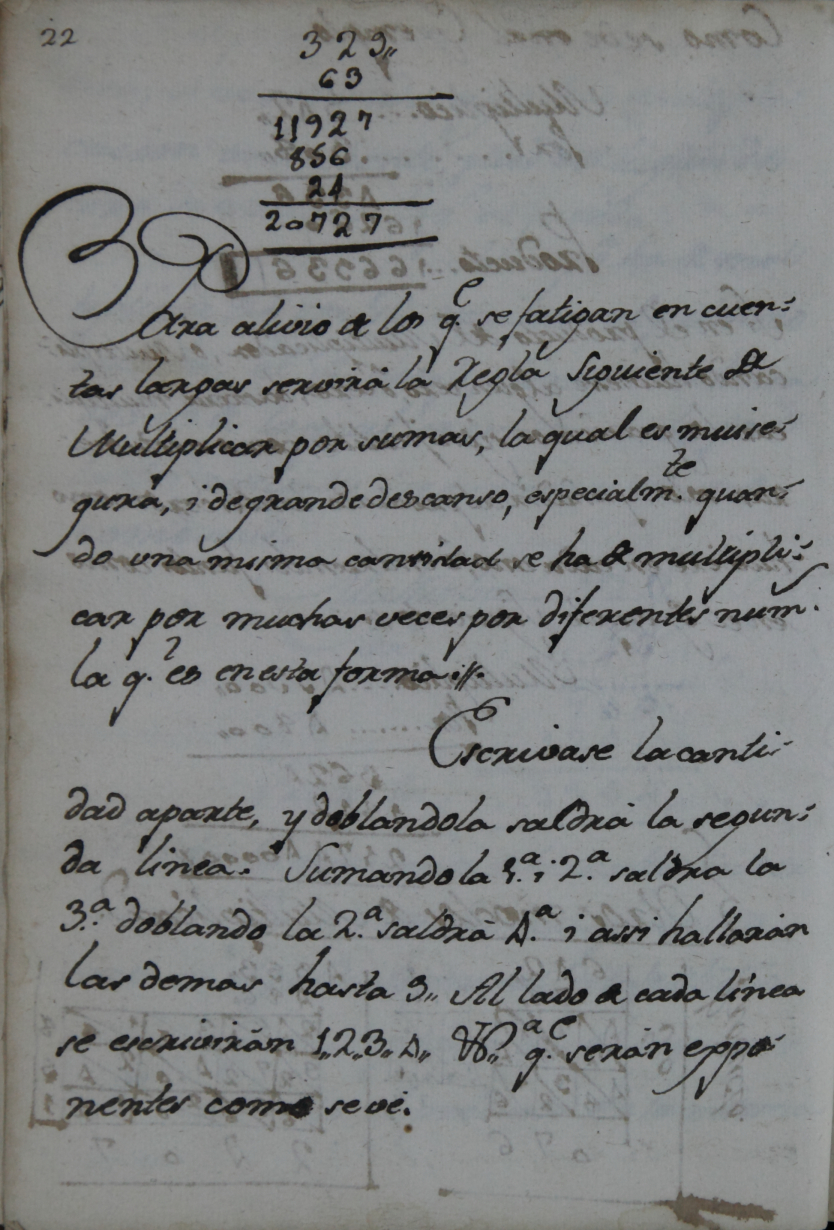 22
329,,
63
11927
856
24
20727
Para alivio de los q.e se fatigan en cuen-
tas largas servirá la Regla siguiente de
Multiplicar por sumas, la qual es mui se-
gura, i de grande descanso, especialm.te quan-
do una misma cantidad se ha de multipli-
car por muchas veces por diferentes núm.
la q.e es en esta forma.//.
Escrivase la canti-
dad aparte, y doblandola saldrá la segun-
da linea. Sumando la 1.a i 2.a saldra la
3.a doblando la 2.a saldrá 4.a i assi hallarán
las demas hasta 9,, Al lado de cada línea
se escrivirán 1,,2,,3,,4,, &,,a q.e serán expo-
nentes como se vé.